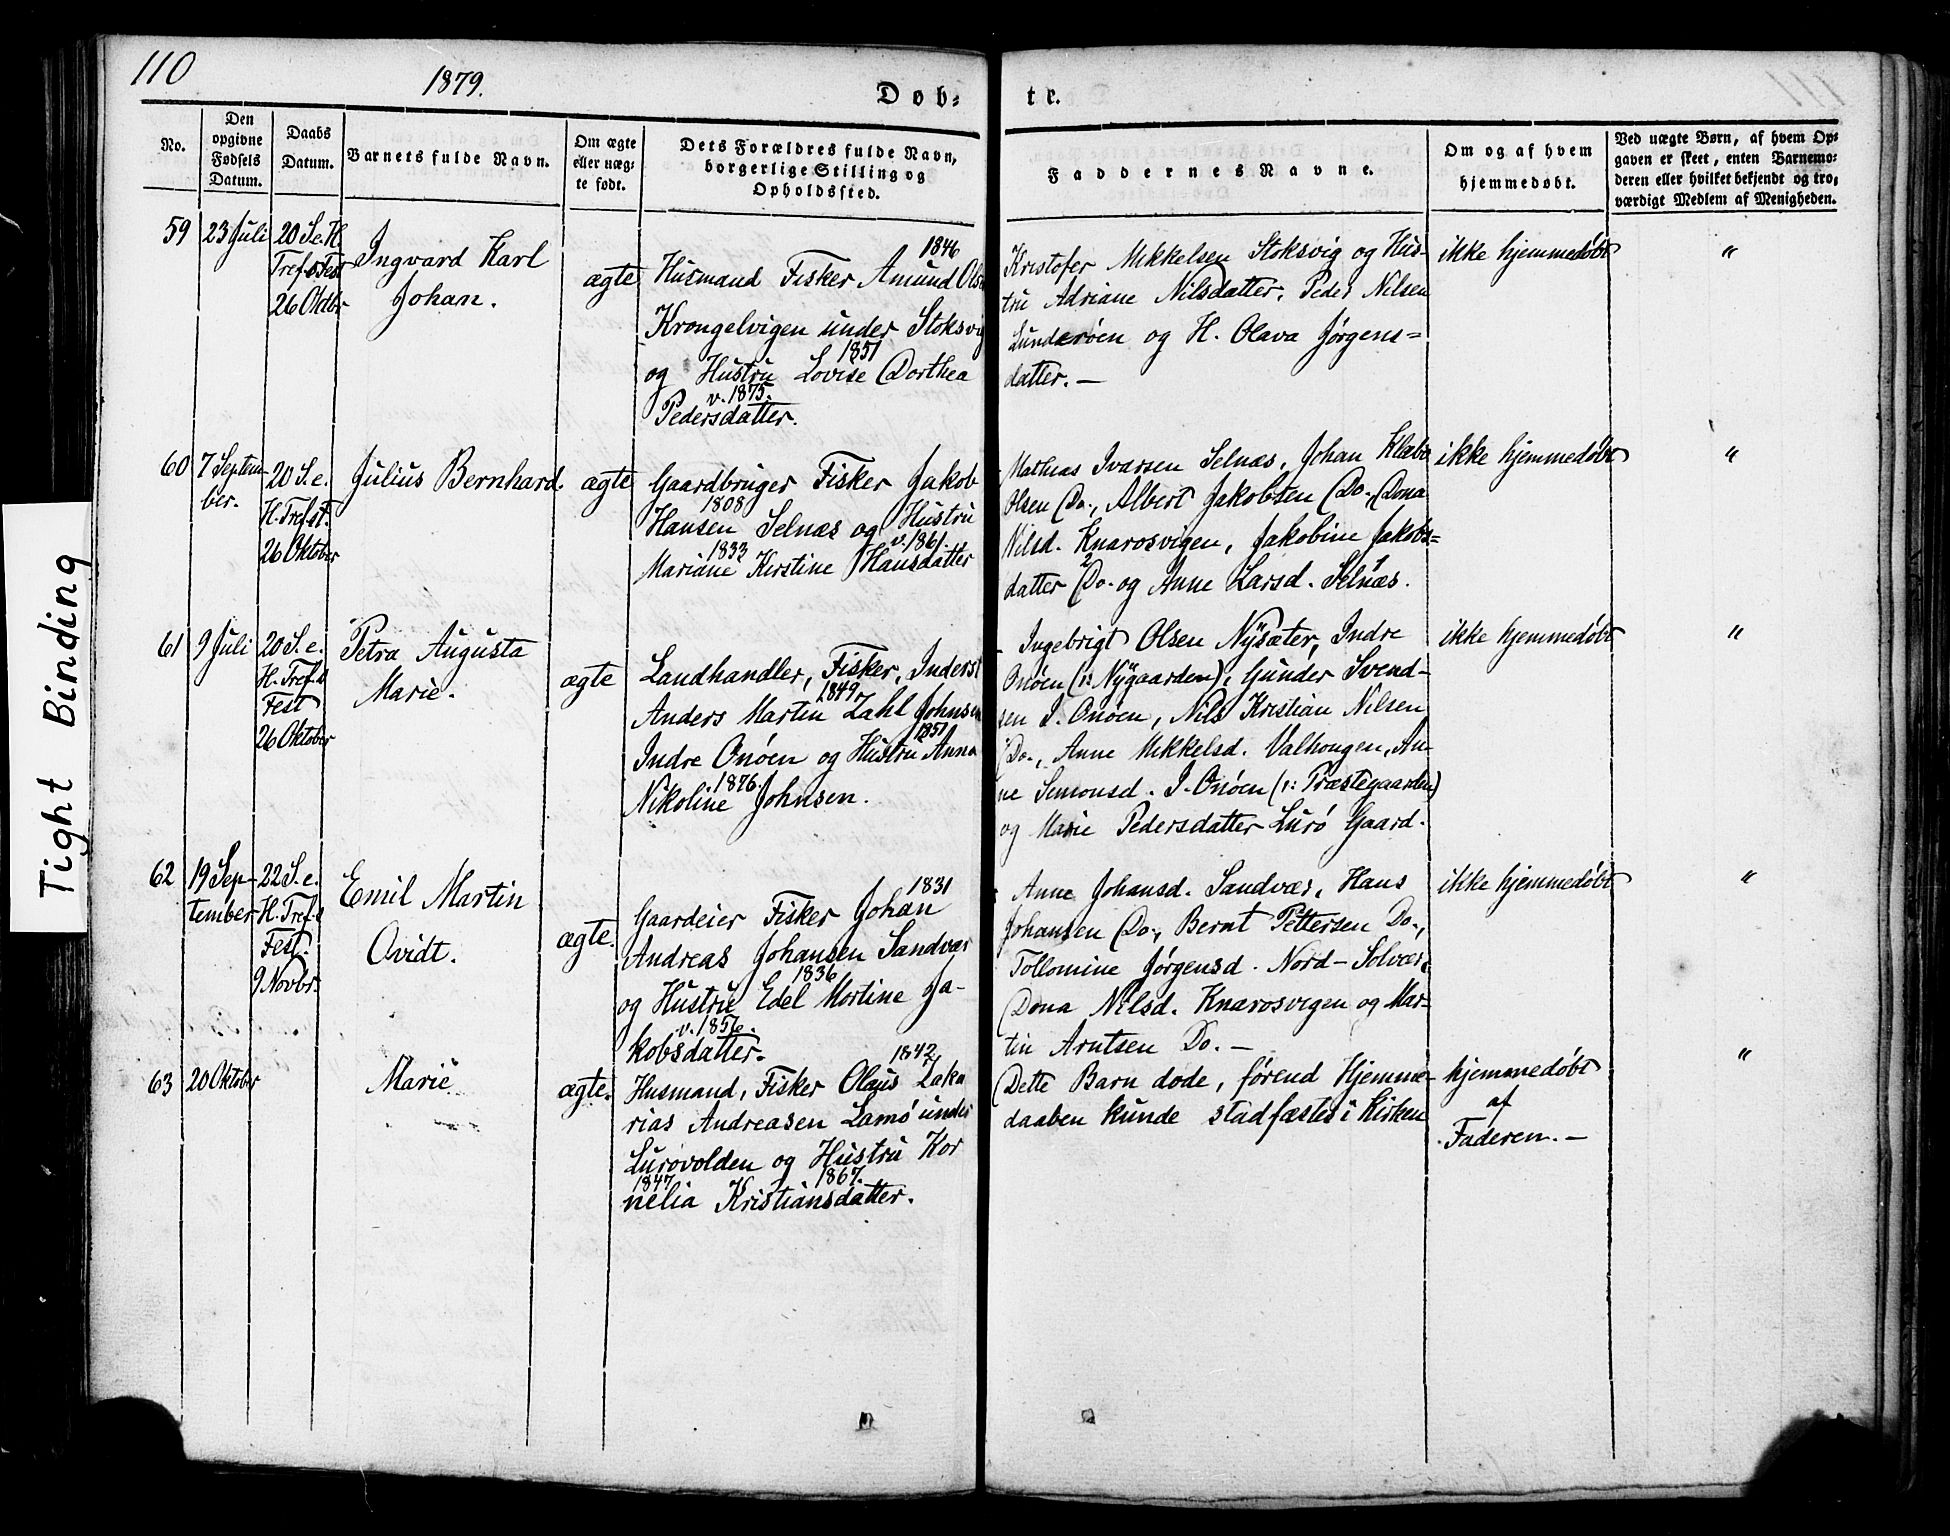 110
1879.
Døb-
te.
111
Tight Binding
No.
Den
opgivne
Fødsels
Datum.
Daabs
Datum.
Barnets fulde Navn.
Om ægte
eller uæg-
te født.
Dets Forældres fulde Navn,
borgerlige Stilling og
Opholdssted.
Faddernes Navne.
Om og af hvem
hjemmedøbt.
Ved uægte Børn, af hvem Op-
gaven er skeet, enten Barnemo-
deren eller hvilket bekjendt og tro-
værdigt Medlem af Menigheden.
59
23 Juli
20 S. e. H.
Tref.s Fest
26 Oktbr
Ingvard Karl
Johan.
ægte
1846
Husmand Fisker Amund Ols
Krongelvigen under Stoksvig
1851
og Hustru Lovise Dorthea
v. 1875.
Pedersdatter.
Kristofer Mikkelsen Stoksvig og Hus-
tru Adriane Nilsdatter, Peder Nilsen
Lunderøen og H. Olava Jørgens=
datter. —
ikke hjemmedøbt
"
60
7 Septem-
ber.
20 S. e.
H. Tref.st.
26 Oktober
Julius Bernhard.
ægte
Gaardbruger Fisker Jakob
1808
Hansen Selnæs og Hustru
1833 v. 1861.
Mariane Kirstine Hansdatter
Mathias Ivarsen Selnæs, Johan Klæbo
Olsen Do., Albert Jakobsen Do., Dona
Nilsd. Knarosvigen, Jakobine Jakobs=
2 1
datter Do. og Anne Larsd. Selnæs.
ikke hjemmedøbt
"
61
9 Juli
20 S. e.
H. Tref.s
Fest
26 Oktober
Petra Augusta
Marie.
ægte
Landhandler, Fisker, Inderst
1849
Anders Martin Zahl Johnsen
1851
Indre Onøen og Hustru Anna
1876.
Nikoline Johnsen.
Ingebrigt Olsen Nysæter, Indre
Onøen (ɔ: Nygaarden), Gunder Svend-
sen I. Onøen, Nils Kristian Nilsen
Do., Anne Mikkelsd. Valhongen, An-
ne Simonsd. I. Onøen (ɔ: Præstegaarden)
og Marie Pedersdatter Lurø Gaard.
ikke hjemmedøbt
"
62
19 Sep-
tember
22 S. e.
H. Tref.s
Fest.
9 Novbr.
Emil Martin
Ovidt.
ægte.
1831
Gaardeier Fisker Johan
Andreas Johansen Sandvær
1836
og Hustru Edel Mortine Ja-
v. 1856.
kobsdatter.
Anne Johansd. Sandvær, Hans
Johansen Do., Bernt Pettersen Do.,
Tollomine Jørgensd. Nord-Solvær,
Dona Nilsd. Knarosvigen og Mar-
tin Arntsen Do. —
ikke hjemmedøbt
"
63
20 Oktober
Marie
ægte.
1842
Husmand, Fisker Olaus Zaka
rias Andreasen Lamø under
Lurøvolden og Hustru Kor
1847 1867.
nelia Kristiansdatter.
Dette Barn døde, førend Hjemme-
daaben kunde stadfæstes i Kirken
hjemmedøbt
af
Faderen. —
"